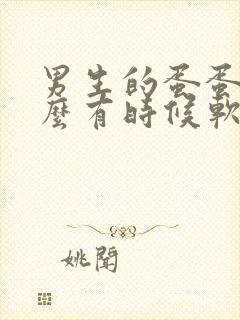 男生的蛋蛋
麼有時候軟
姚聞